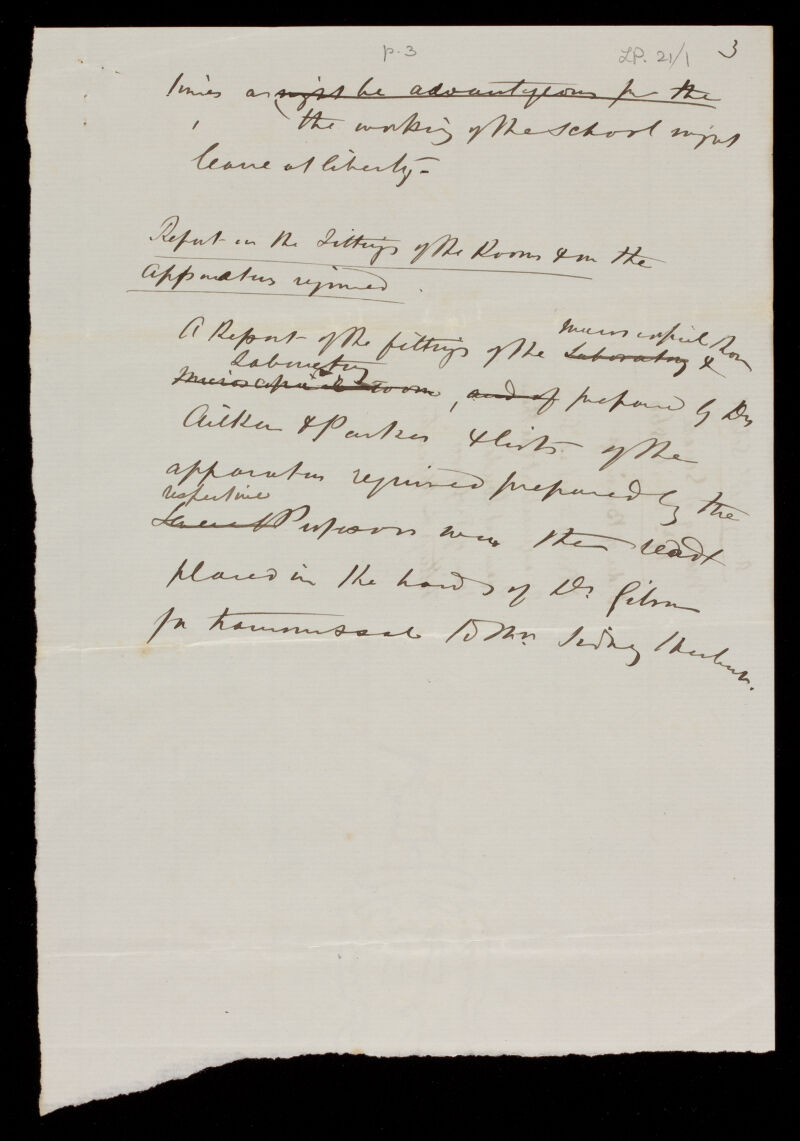 p. 3
LP. 21/1
3
times as might be advantageous for the
the working of the School might
leave at liberty -
Report on the Fittings of the Rooms & on the
Apparatus required.
A Report of the fittings of the Laboratory &
Microscopical Room
Microscopical room, and of prepared by Drs
Laboratory
Aitken & Parkes & lists of the
apparatus required prepared by the
respective
Several Professors were then read &
placed in the hands of Dr. Gibson
for transmissal to Mr. Sidney Herbert.